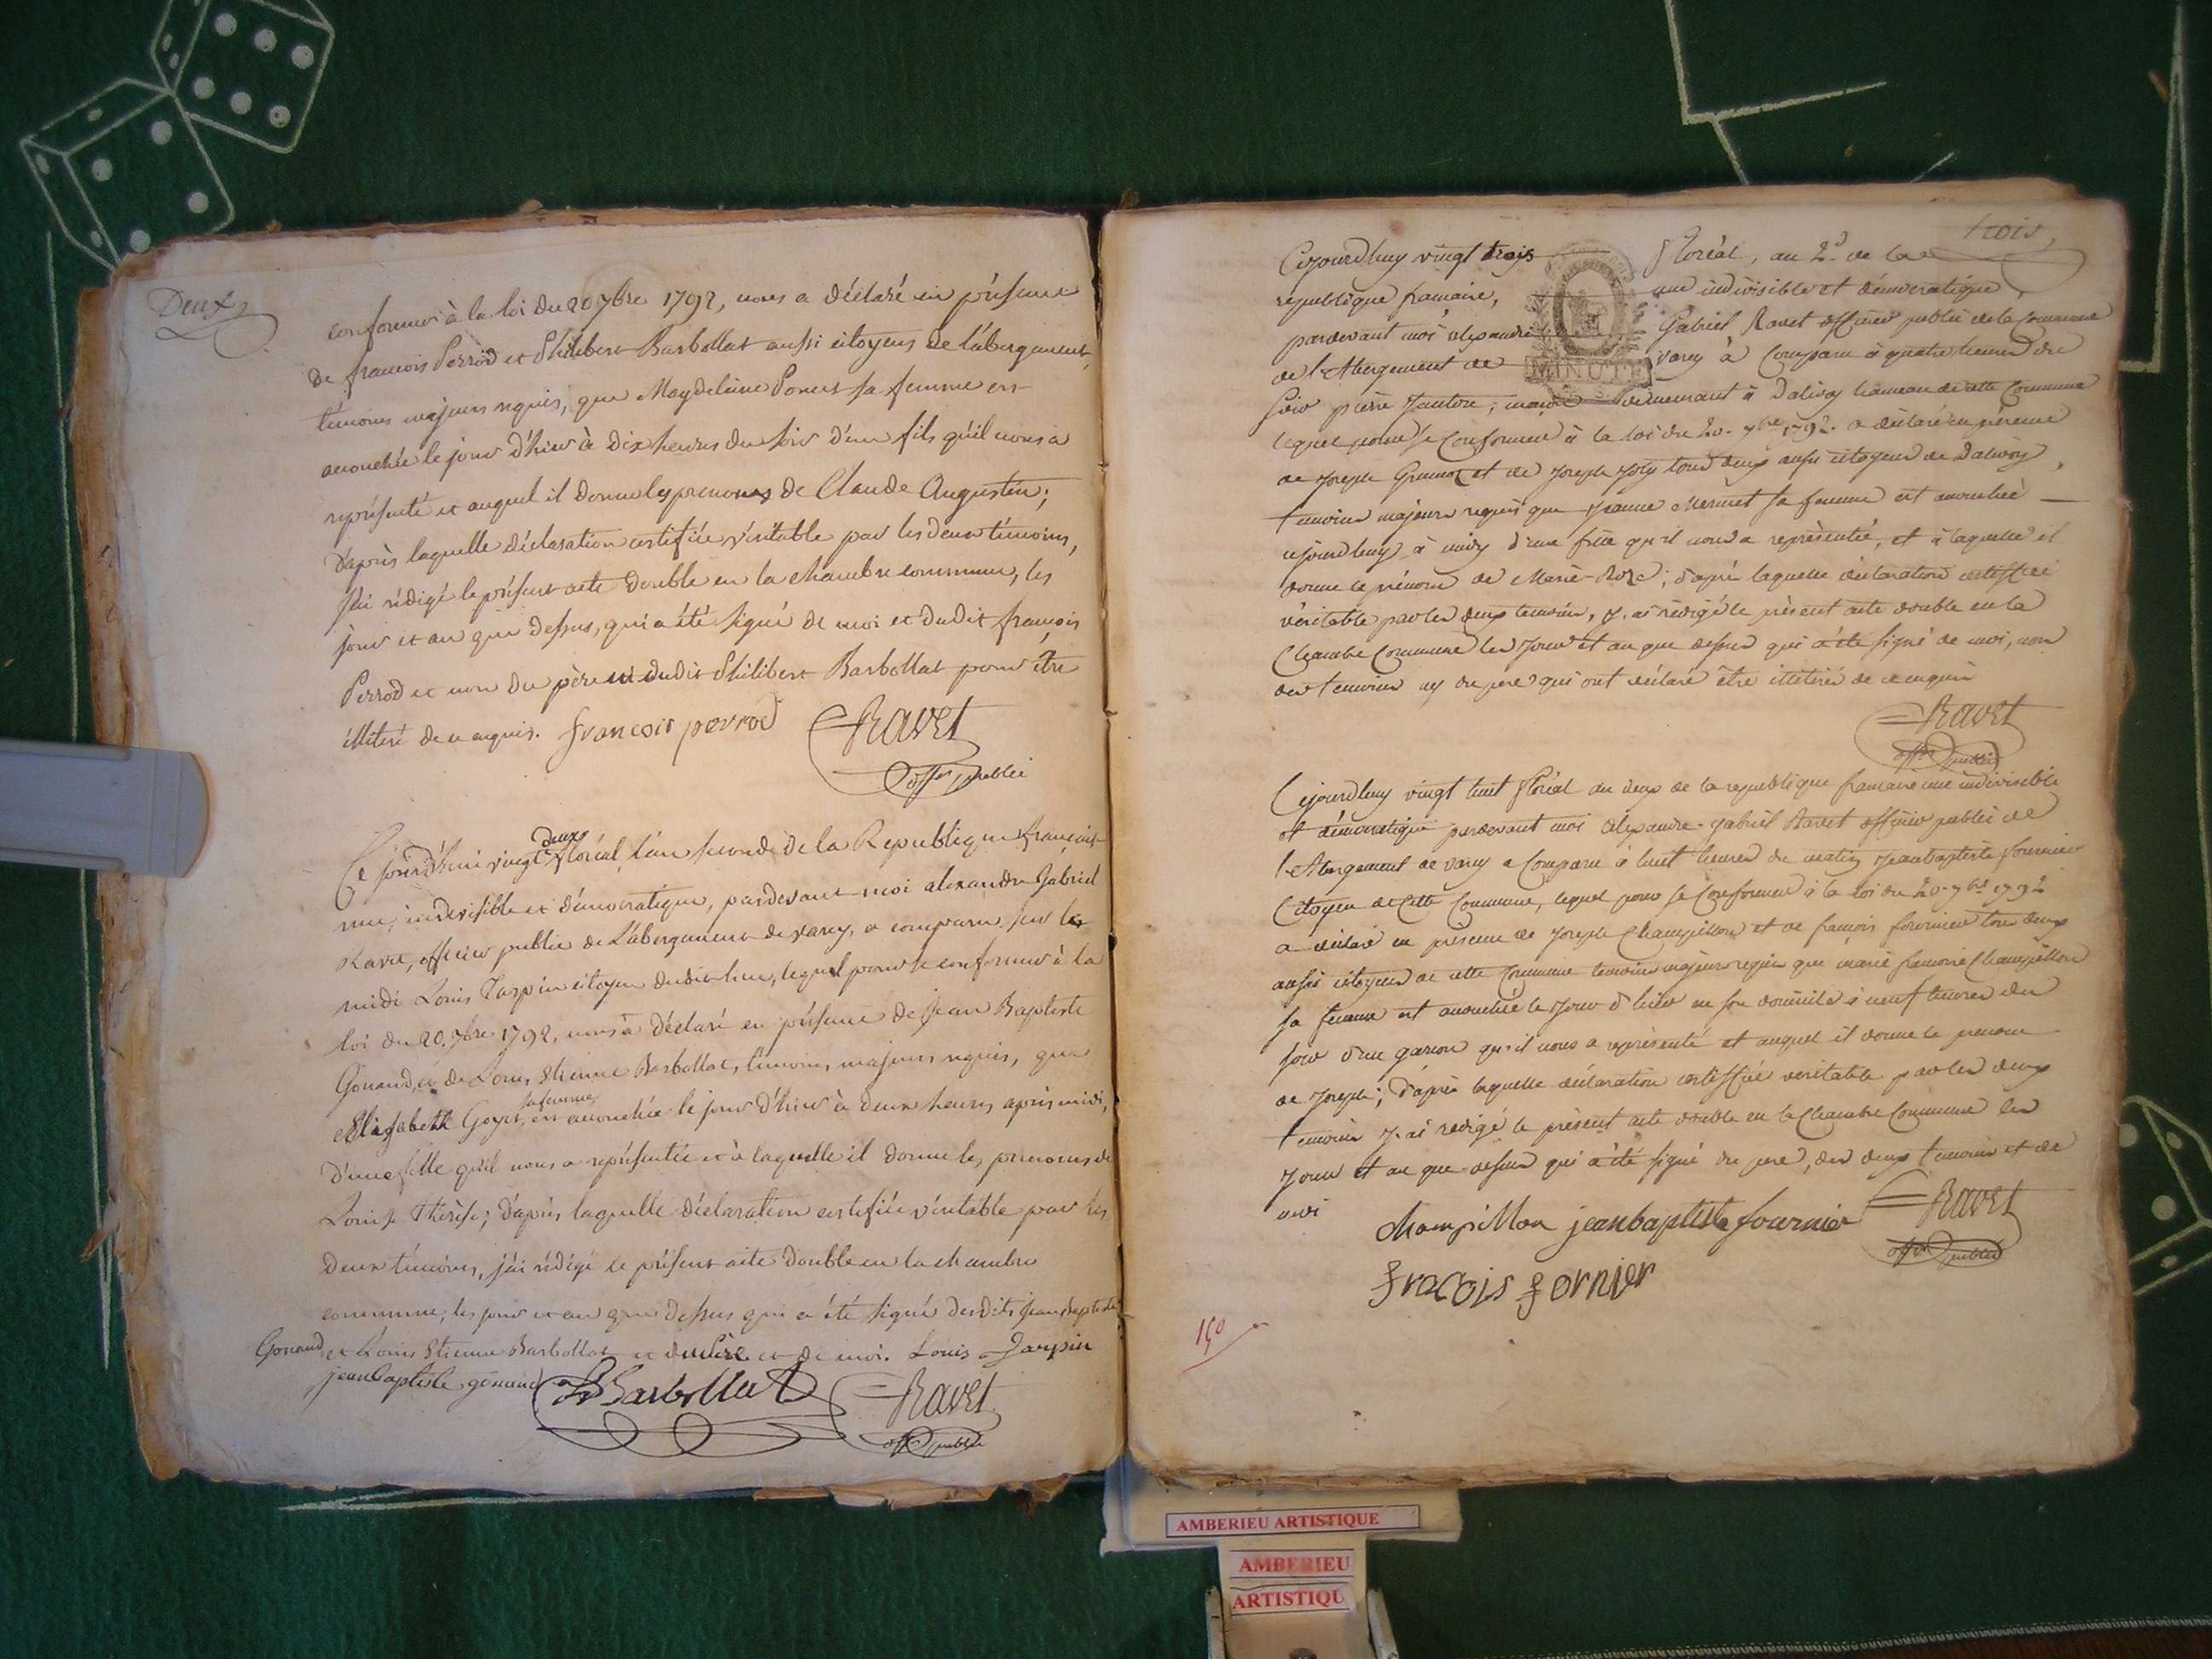 Deux
conformer à la loi du 20 7bre 1792, nous a déclaré en présence
de françois Perrod et Philibert Barbollat aussi citoyens de L'abergement,
témoins majeurs requis, que Magdeleine Poncet sa femme est
accouchée le jour d'hier à dix heures du soir d'un fils qu'il nous a
représenté et auquel il donne les prenoms de Claude Augustin;
d'après laquelle déclaration certifiée véritable par les deux témoins,
j'ai rédigé le présent acte double en la chambre commune, les
jour et an que dessus, qui a été signé de moi et dudit françois
Perrod et non du père ni dudit Philibert Barbollat pour être
illiteré de ce enquis. francois perrod Ravet
offer public
Ce jourd'hui vingt deux floréal l'an second de la Republique françoise
une, indivisible et démocratique, pardevant moi alexandre Gabriel
Ravet, officier public de L'abergement de varey, a comparu sur le
midi Louis Jarpin citoyen dudit lieu, lequel pour se conformer à la
loi du 20. 7bre 1792, nous a déclaré en présence de Jean Baptiste
Gonand, et de Louis Etienne Barbollat, témoins majeurs requis, que
Elisabeth Goyet, sa femme est accouchée le jour d'hier à deux heures après midi,
d'une fille qu'il nous a représentée et à laquelle il donne les prenoms de
Louise Thérèse; d'après laquelle déclaration certifiée véritable par les
deux témoins, j'ai rédigé le présent acte double en la chambre
commune, les jour et an que dessus qui a été signé desdits Jean baptiste
Gonand et Louis Etienne Barbollat et du père et de moi. Louis Jarpin
jean baptiste gonand Barbollat Ravet
offer public
trois
Cejourdhuy vingt trois floréal, an 2d de la
republique francaise, une indivisible et démocratique,
pardevant moi alexandre Gabriel Ravet officier public de la Commune
de l'Abergement de varey à Comparu à quatre heures du
MINUTE
soir pierre Janton, demeurant à Dalivoy hameau de cette Commune
lequel pour se Conformer à la loi du 20. 7bre 1792. a déclaré en présence
de Joseph et de Joseph Joly tous deux aussi citoyens de Dalivoy,
temoins majeurs requis que Jeanne Mermet sa femme est accouchée
cejourdhuy à midy d'une fille qu'il nous a représentée, et à laquelle il
donne le prénom de Marie-Roze; d'après laquelle déclaration certiffiée
véritable par les deux temoins, j'ai rédigé le présent acte double en la
Chambre Commune les Jour et an que dessus qui a été signé de moi, non
des temoins ny du pere qui ont déclaré être illitérés de ce enquis
Ravet
offer public
Cejourdhuy vingt huit floréal an deux de la republique francaise une indivisible
et démocratique pardevant moi Alexandre-Gabriel Ravet officier public de
l'Abergement de varey a Comparu à huit heures du matin Jean baptiste fournier
Citoyen de cette Commune, lequel pour se Conformer à la loi du 20. 7bre 1792
a déclaré en présence de Joseph Champillon et de francois fournier tous deux
aussi citoyens de cette Commune temoins majeurs requis que marie francoise Champillon
sa femme est accouchée le Jour d'hier en son domicile à neuf heures du
soir d'un garcon qu'il nous a représenté et auquel il donne le prenom
de Joseph; d'après laquelle déclaration certiffiée véritable par les deux
temoins j'ai rédigé le présent acte double en la Chambre Commune les
Jour et an que dessus qui a été signé du pere, des deux temoins et de
moi
champillon jean baptiste fournier Ravet
offer public
fracois fornier
AMBERIEU ARTISTIQUE
AMBERIEU
ARTISTIQU